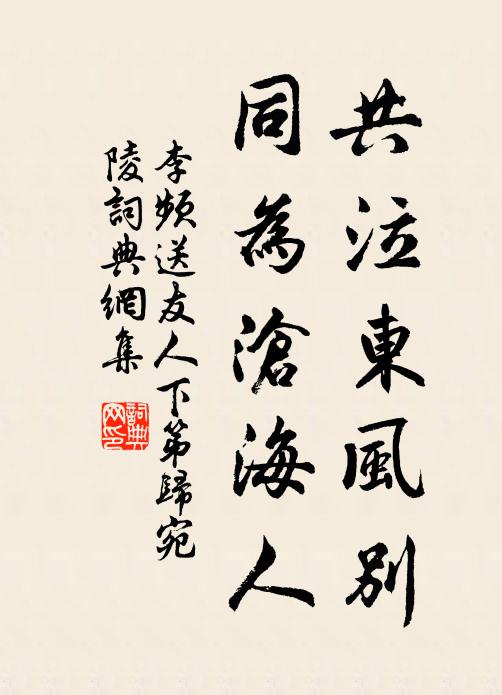 共泣東風別
同為滄海人
李頻送友人下第歸宛
陵詞典網集
詞典
网印